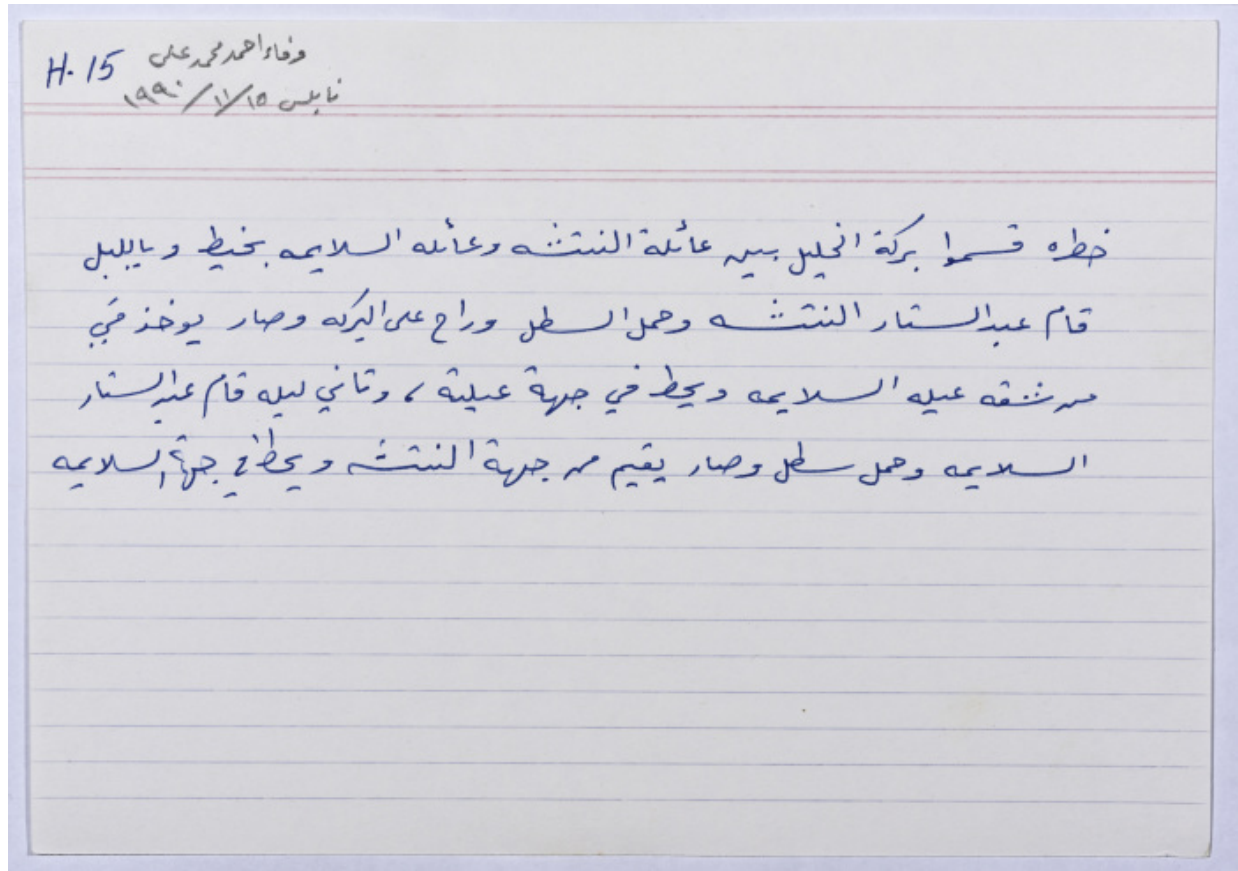 وفاء احمد محمد علي
H. 15
نابلس ١٥/ ١١/ ١٩٩٠
خطره قسموا بركة الخليل بين عائلة النتشه وعائله السلايمه بخيط وبالليل
قام عبد الستار النتشه وحمل السطل وراح على البركه وصار يوخذ مَيّ
من شقه عيله السلايمه ويحط في جهة عيلته ، وتاني ليله قام عبد الستار
السلايمه وحمل سطل وصار يقيم من جهة النتشه ويحط في جهة السلايمه